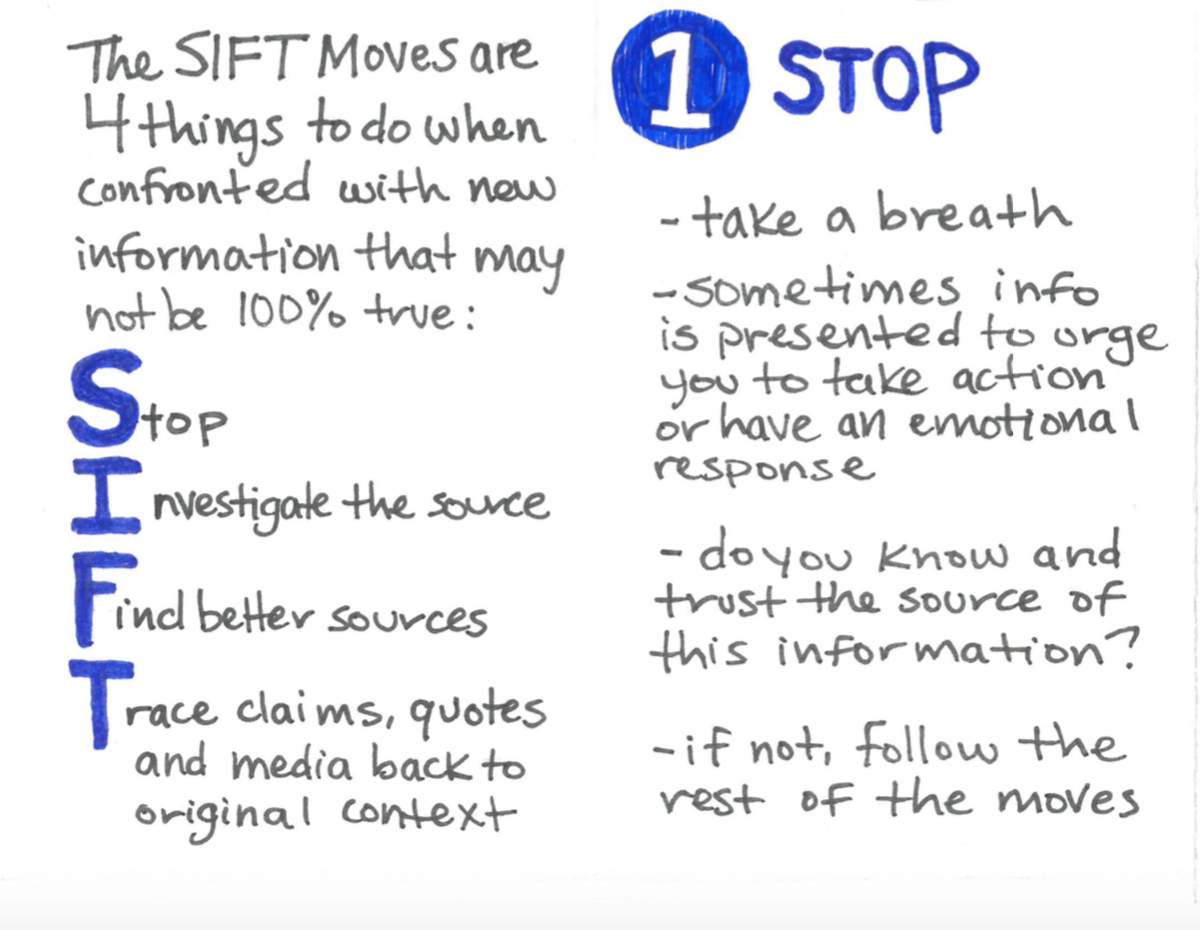 The SIFT Moves are
4 things to do when
confronted with new
information that may
not be 100% true:
Stop
Investigate the source
Find better sources
Trace claims, quotes
and media back to
original context
1 STOP
- take a breath
- sometimes info
is presented to urge
you to take action
or have an emotional
response
- do you know and
trust the source of
this information?
- if not, follow the
rest of the moves